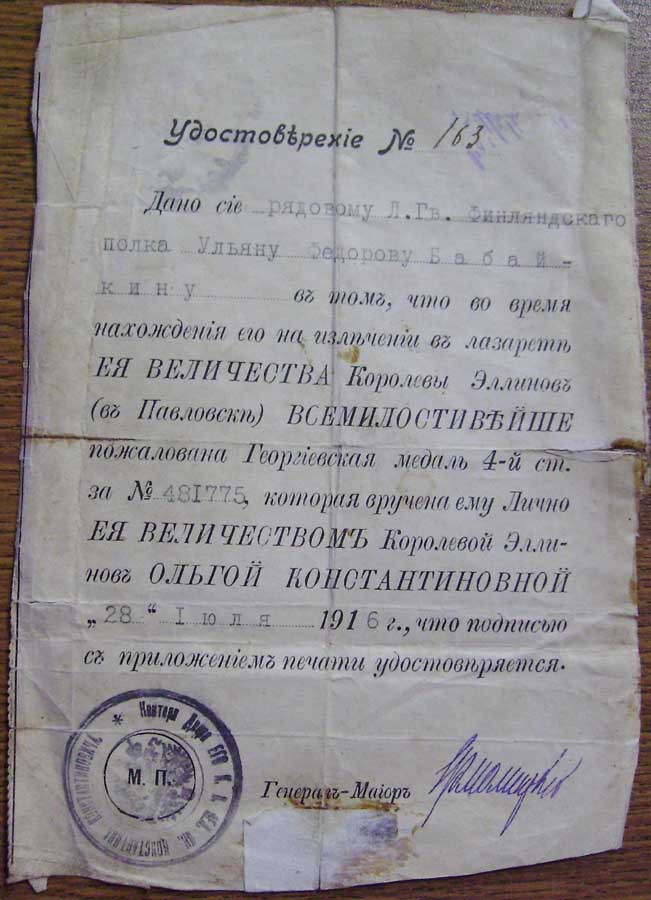 Удостовѣреніе № 163
Дано сіе рядовому Л.Гв. Финляндскаго
полка Ульяну Федорову Бабай-
кину въ томъ, что во время
нахожденія его на излѣченіи въ лазаретѣ
ЕЯ ВЕЛИЧЕСТВА Королевы Эллиновъ
(въ Павловскѣ) ВСЕМИЛОСТИВѢЙШЕ
пожалована Георгіевская медаль 4-й ст.
за № 481775, которая вручена ему Лично
ЕЯ ВЕЛИЧЕСТВОМЪ Королевой Элли-
новъ ОЛЬГОЙ КОНСТАНТИНОВНОЙ
„28“ Іюля 1916 г., что подписью
съ приложеніемъ печати удостовѣряется.
* Контора Двора ЕГО И. В. КОНСТАНТИНА КОНСТАНТИНОВИЧА
М. П.
Генералъ-Маіоръ